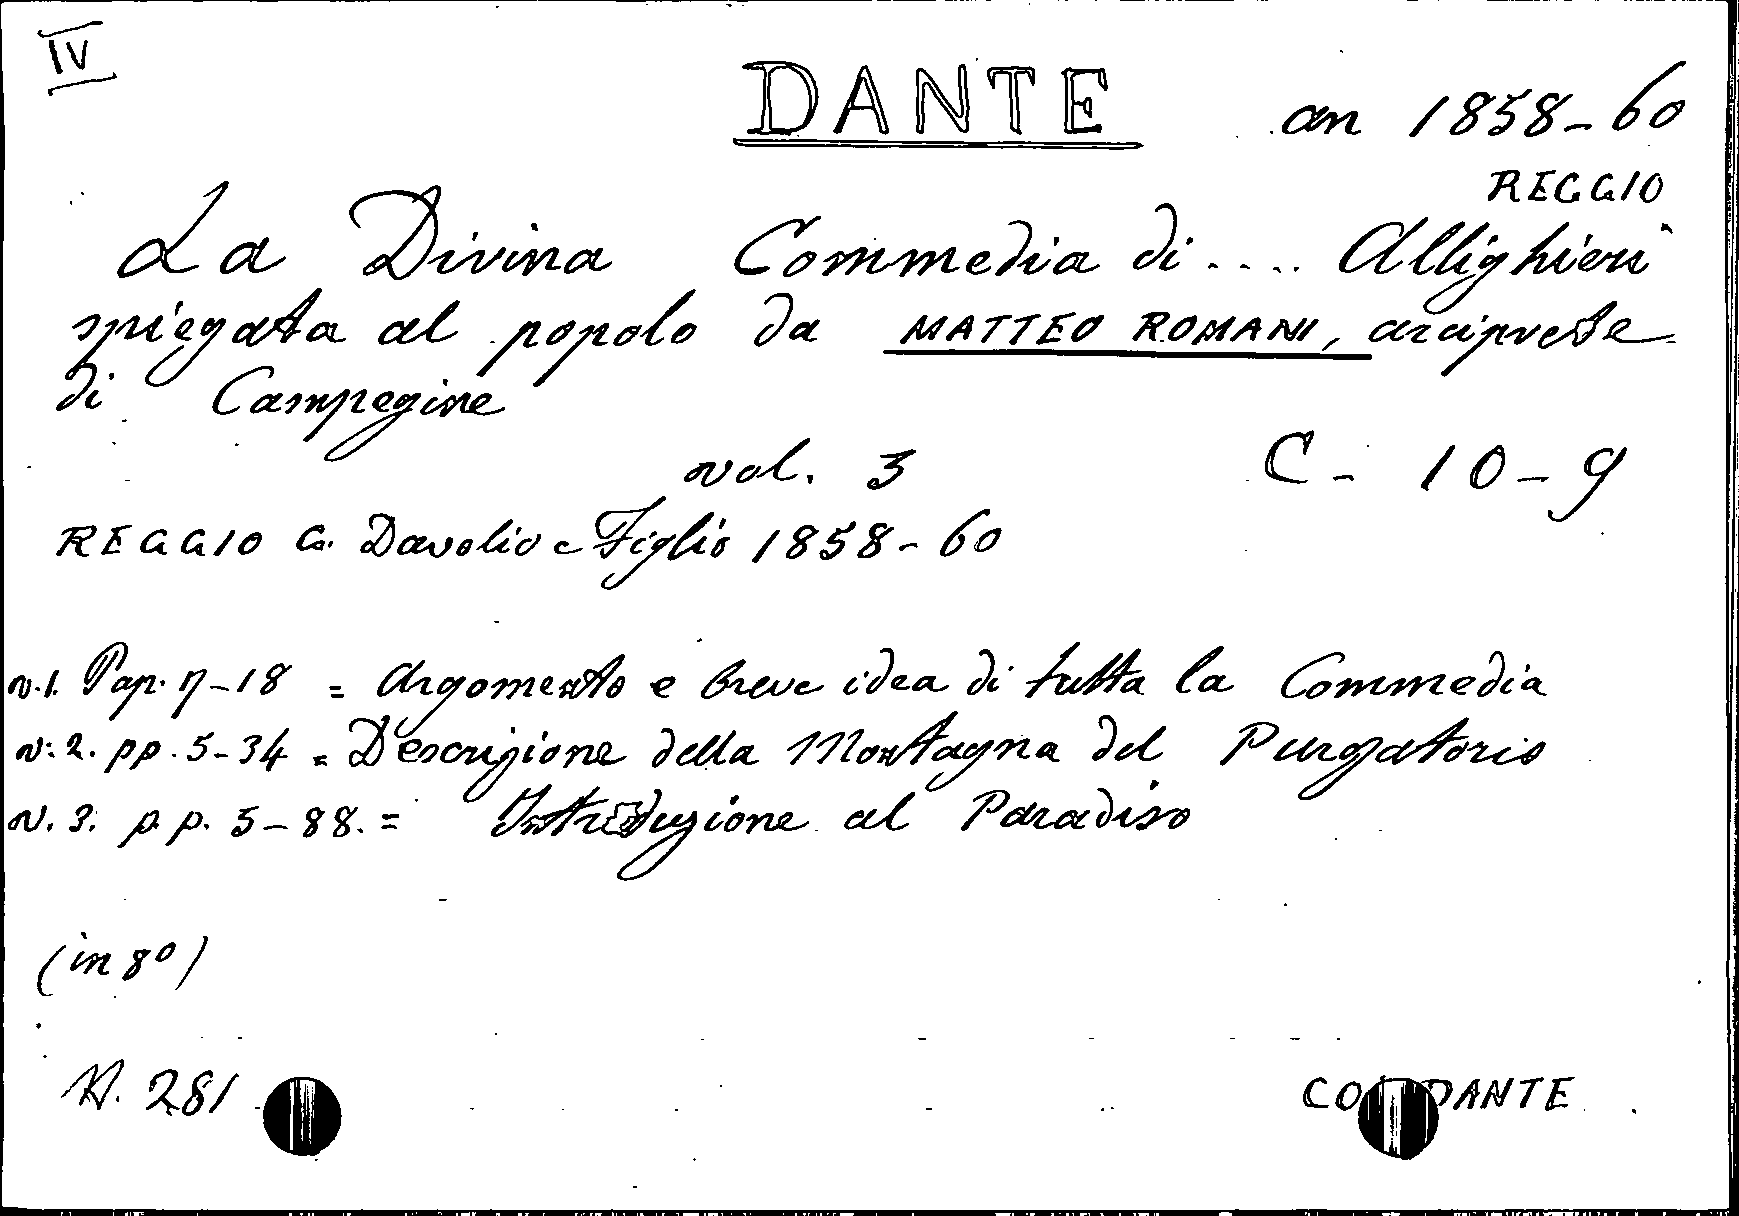 IV
DANTE an 1858-60
REGGIO
La Divina Commedia di .... Allighieri
spiegata al popolo da MATTEO ROMANI, arciprete
di Campegine
vol. 3 C - 10 - 9
REGGIO G. Davolio e Figlio 1858-60
v.1. Pap. 7-18 = Argomento e breve idea di tutta la Commedia
v. 2. pp. 5-34 = Descrizione della Montagna del Purgatorio
v. 3. pp. 5-88. = Introduzione al Paradiso
(in 8°)
N. 281 DANTE